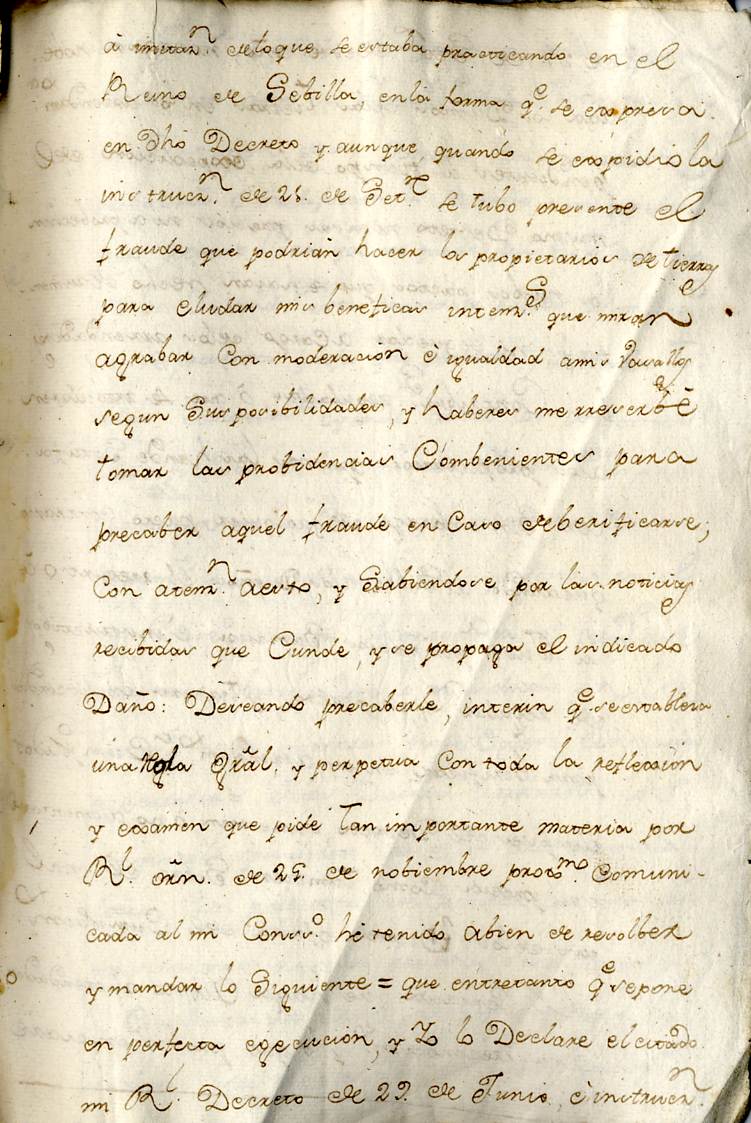 à imitaz.n de lo que, se estaba practicando en el
Reino de Sebilla, en la forma q.e se expresa
en dho Decreto y aunque, quando se expidio la
instruczn. de 21. de Setre. se tubo presente el
fraude que podrian hacer los propietarios de tierras
para eludar mis beneficas intenz.s que miran
agrabar con moderacion è igualdad a mis Vasallos
segun Sus posibilidades, y haberes me rreserbè
tomar las probidencias Combenientes para
precaber aquel fraude en Caso de berificarse;
Con atenz.n a esto, y Sabiendose por las noticias
recibidas que Cunde, y se propaga el indicado
Daño: Deseando precaberle, interin q.e se establesca
una Regla Gral. y perpetua con toda la reflexion
y examen que pide tan importante materia por
Rl. orn. de 29. de nobiembre proxmo. Comuni-
cada al mi Conss.o he tenido abien de resolber
y mandar lo Siguiente = que entretanto q.e se pone
en perfecta egecucion, y Yo lo Declare el citado
mi Rl. Decreto de 29. de Junio, è instruczn.